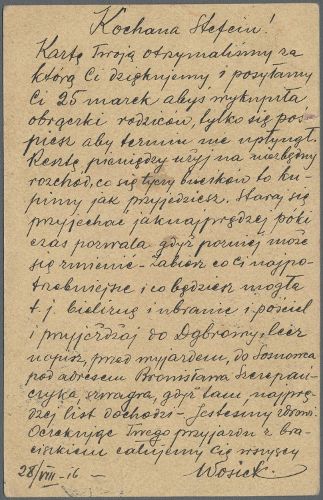 Kochana Stefciu!
Kartę Twoją otrzymaliśmy za
którą Ci dziękujemy i posyłamy
Ci 25 marek abyś wykupiła
obrączki rodziców, tylko się pos-
piesz aby termin nie upłynął.
Resztę pieniędzy użyj na niezbędny
rozchód, co się tyczy bucików to ku-
pimy jak przyjedziesz. Staraj się
przyjechać jaknajprędzej póki
czas pozwala gdyż później może
się zmienić – Zabierz co Ci najpo-
trzebniejsze i co będziesz mogła
t. j. bieliznę i ubranie i pościel
i przyjeżdżaj do Dąbrowy lecz
napisz, przed wyjazdem, do Sosnowca
pod adresem Bronisława Szczepań-
czyka szwagra, gdyż tam najprę-
dzej list dochodzi – Jesteśmy zdrowi.
Oczekując Twego przyjazdu z bra-
ciszkiem całujemy Cię wszyscy
28/VIII – 16 –